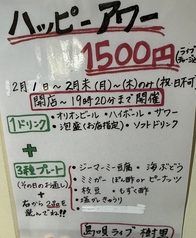 ハッピーアワー
1500円
2月1日～2月末(月)～(木)のみ(祝・日不可)
開店～19時20分まで開催
1ドリンク
・オリオンビール・ハイボール・サワー
・泡盛(お店指定)・ソフトドリンク
+
3種プレート
(その日のお通し)
+
右から2品を
選んでね!!
・ジーマーミー豆腐・海ぶどう
・ミミガーぽん酢 or ピーナッツ
・枝豆・もずく酢
・塩からきゅうり
島唄ライブ